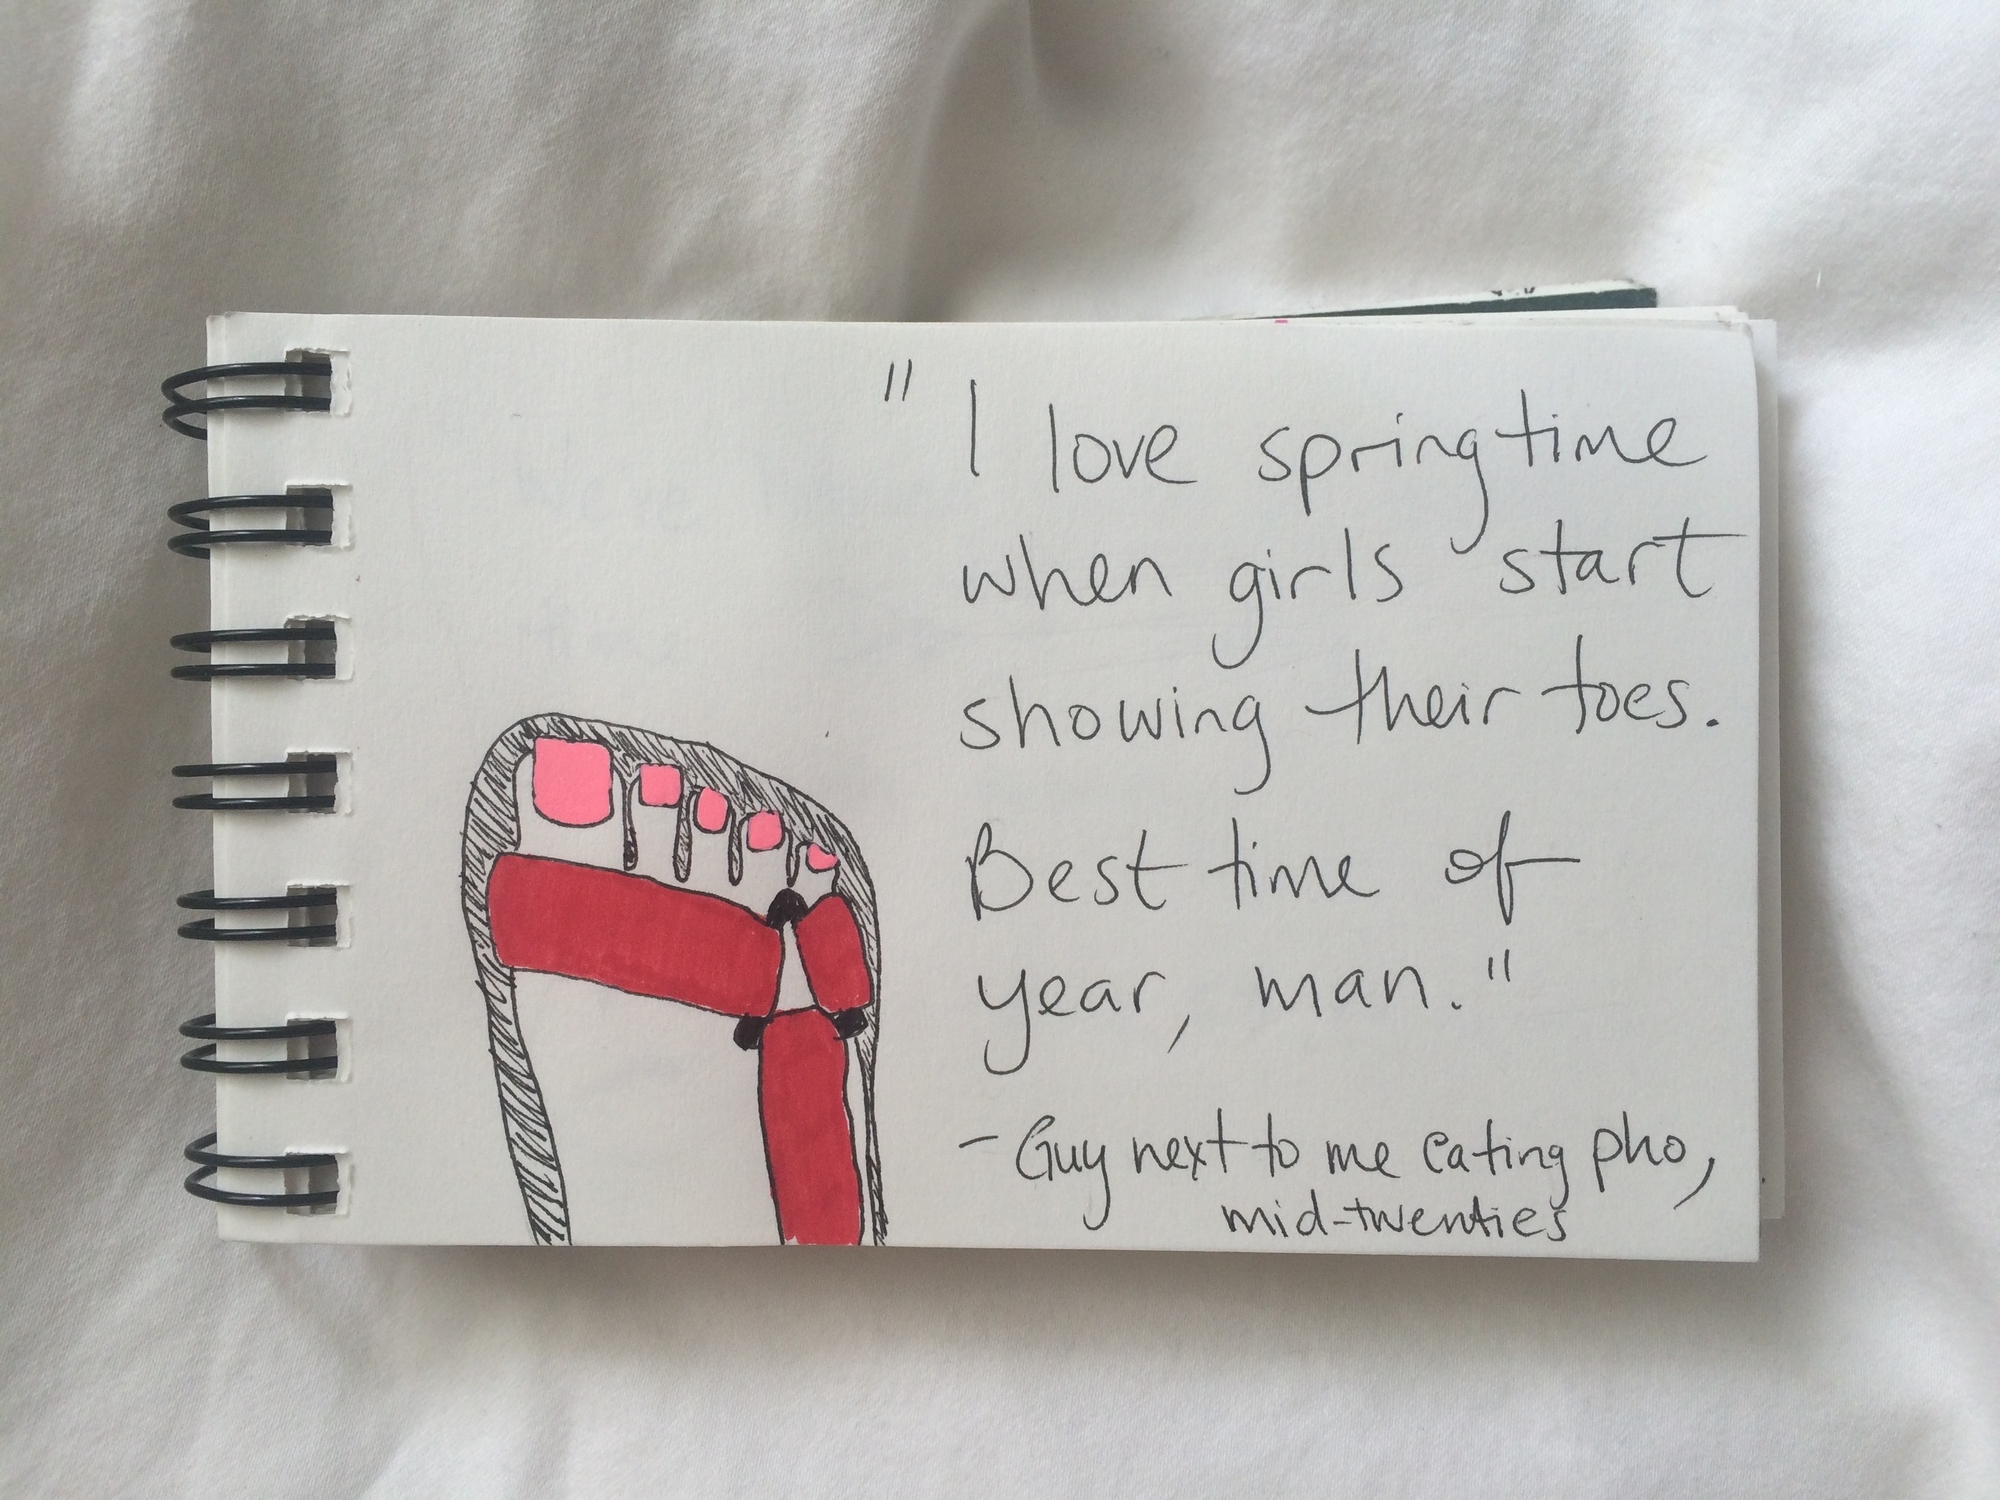 "I love springtime
when girls start
showing their toes.
Best time of
year, man."
- Guy next to me eating pho,
mid-twenties